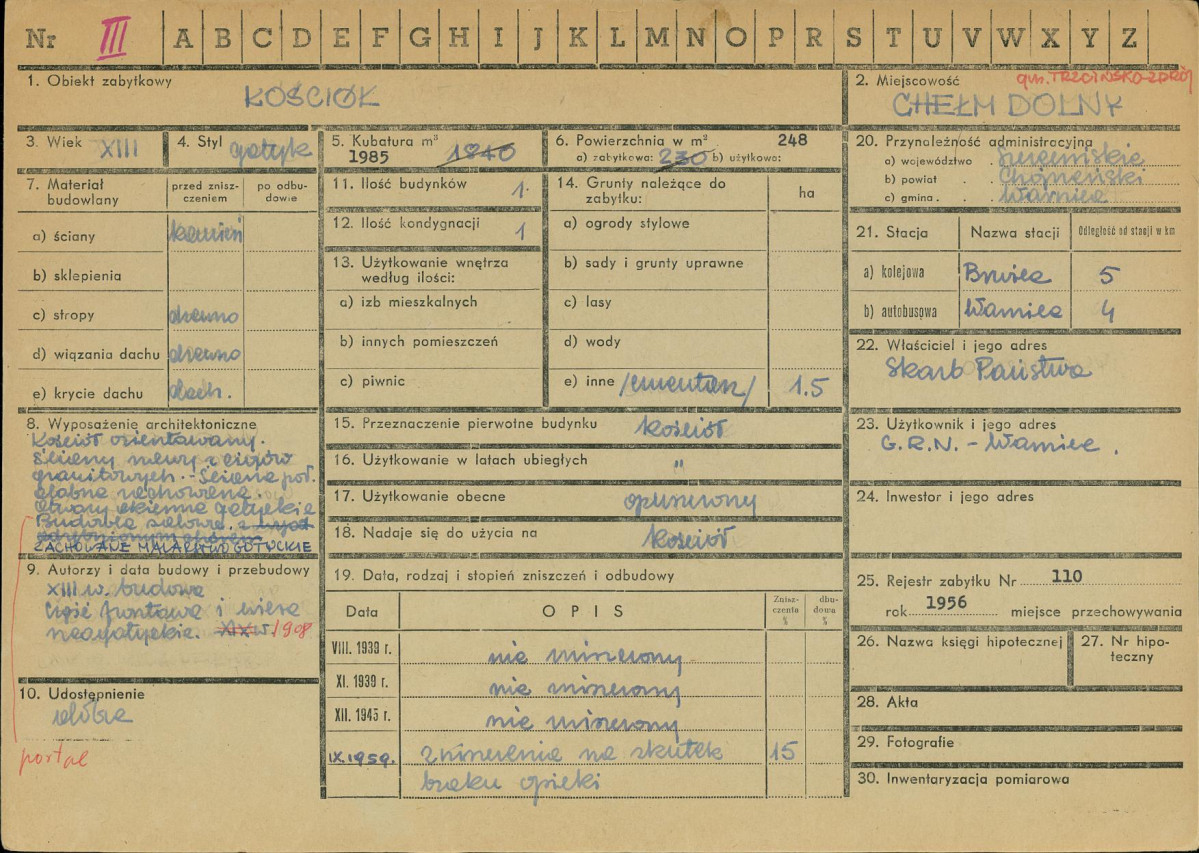 Nr III A B C D E F G H I J K L M N O P R S T U V W X Y Z
1. Obiekt zabytkowy
KOŚCIÓŁ
2. Miejscowość
gm. TRZCIŃSKO-ZDRÓJ
CHEŁM DOLNY
3. Wiek XIII
4. Styl gotyk
5. Kubatura m³
1985 1840
6. Powierzchnia w m² 248
a) zabytkowa: 230 b) użytkowo:
20. Przynależność administracyjna
a) województwo . Szczecińskie
b) powiat . Chojneński
c) gmina . . Warnice
7. Materiał budowlany
przed zniszczeniem
po odbudowie
a) ściany kamień
b) sklepienia
c) stropy drewno
d) wiązania dachu drewno
e) krycie dachu dach.
11. Ilość budynków 1.
12. Ilość kondygnacji 1
13. Użytkowanie wnętrza
według ilości:
a) izb mieszkalnych
b) innych pomieszczeń
c) piwnic
14. Grunty należące do
zabytku:
ha
a) ogrody stylowe
b) sady i grunty uprawne
c) lasy
d) wody
e) inne /cmentarz/ 1.5
21. Stacja
Nazwa stacji
Odległość od stacji w km
a) kolejowa 5
b) autobusowa Warnice 4
22. Właściciel i jego adres
Skarb Państwa
8. Wyposażenie architektoniczne
Kościół orientowany.
Ściany, mury z ciosów
granitowych. - Ściana poł.
zachowana.
Otwory okienne gotyckie
Budowla salowa. z
ZACHOWANE MALARSTWO GOTYCKIE
15. Przeznaczenie pierwotne budynku kościół
16. Użytkowanie w latach ubiegłych "
17. Użytkowanie obecne opuszczony
18. Nadaje się do użycia na kościół
23. Użytkownik i jego adres
G.R.N. - Warnice.
24. Inwestor i jego adres
9. Autorzy i data budowy i przebudowy
XIII w. budowa
Część frontowa i wieża
neogotyckie. XIX w. 1908
19. Data, rodzaj i stopień zniszczeń i odbudowy
Data
OPIS
Zniszczenia %
dbudowa %
VIII. 1939 r. nie zniszczony
XI. 1939 r. nie zniszczony
XII. 1945 r. nie zniszczony
IX. 1959. zniszczenia na skutek 15
braku opieki
10. Udostępnienie
dobre
portal
25. Rejestr zabytku Nr 110
rok 1956 miejsce przechowywania
26. Nazwa księgi hipotecznej
27. Nr hipoteczny
28. Akta
29. Fotografie
30. Inwentaryzacja pomiarowa